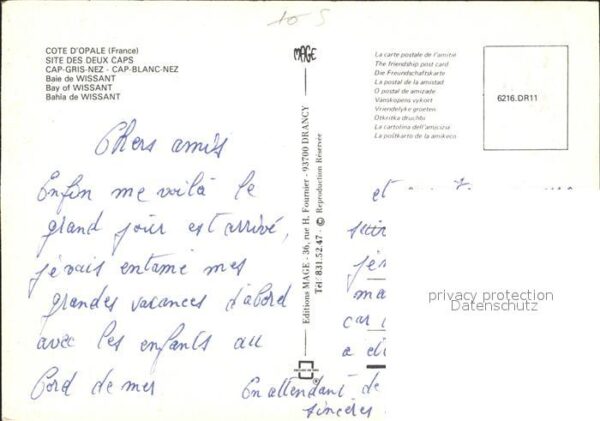 10 5
COTE D'OPALE (France)
SITE DES DEUX CAPS
CAP-GRIS-NEZ - CAP-BLANC-NEZ
Baie de WISSANT
Bay of WISSANT
Bahia de WISSANT
Chers amis
Enfin me voilà le
grand jour est arrivé,
je vais entamé mes
grandes vacances d'abord
avec les enfants au
bord de mer
MAGE
Editions MAGE - 36, rue H. Fournier - 93700 DRANCY
Tél : 831.52.47 - © Reproduction Réservée
La carte postale de l'amitié
The friendship post card
Die Freundschaftskarte
La postal de la amistad
O postal de amizade
Vanskopens vykort
Vriendelyke groeten
Otkritka druchbi
La cartolina dell'amicizia
La postkarto de la amikeco
6216.DR11
et
car
En attendant de
sincères
privacy protection
Datenschutz